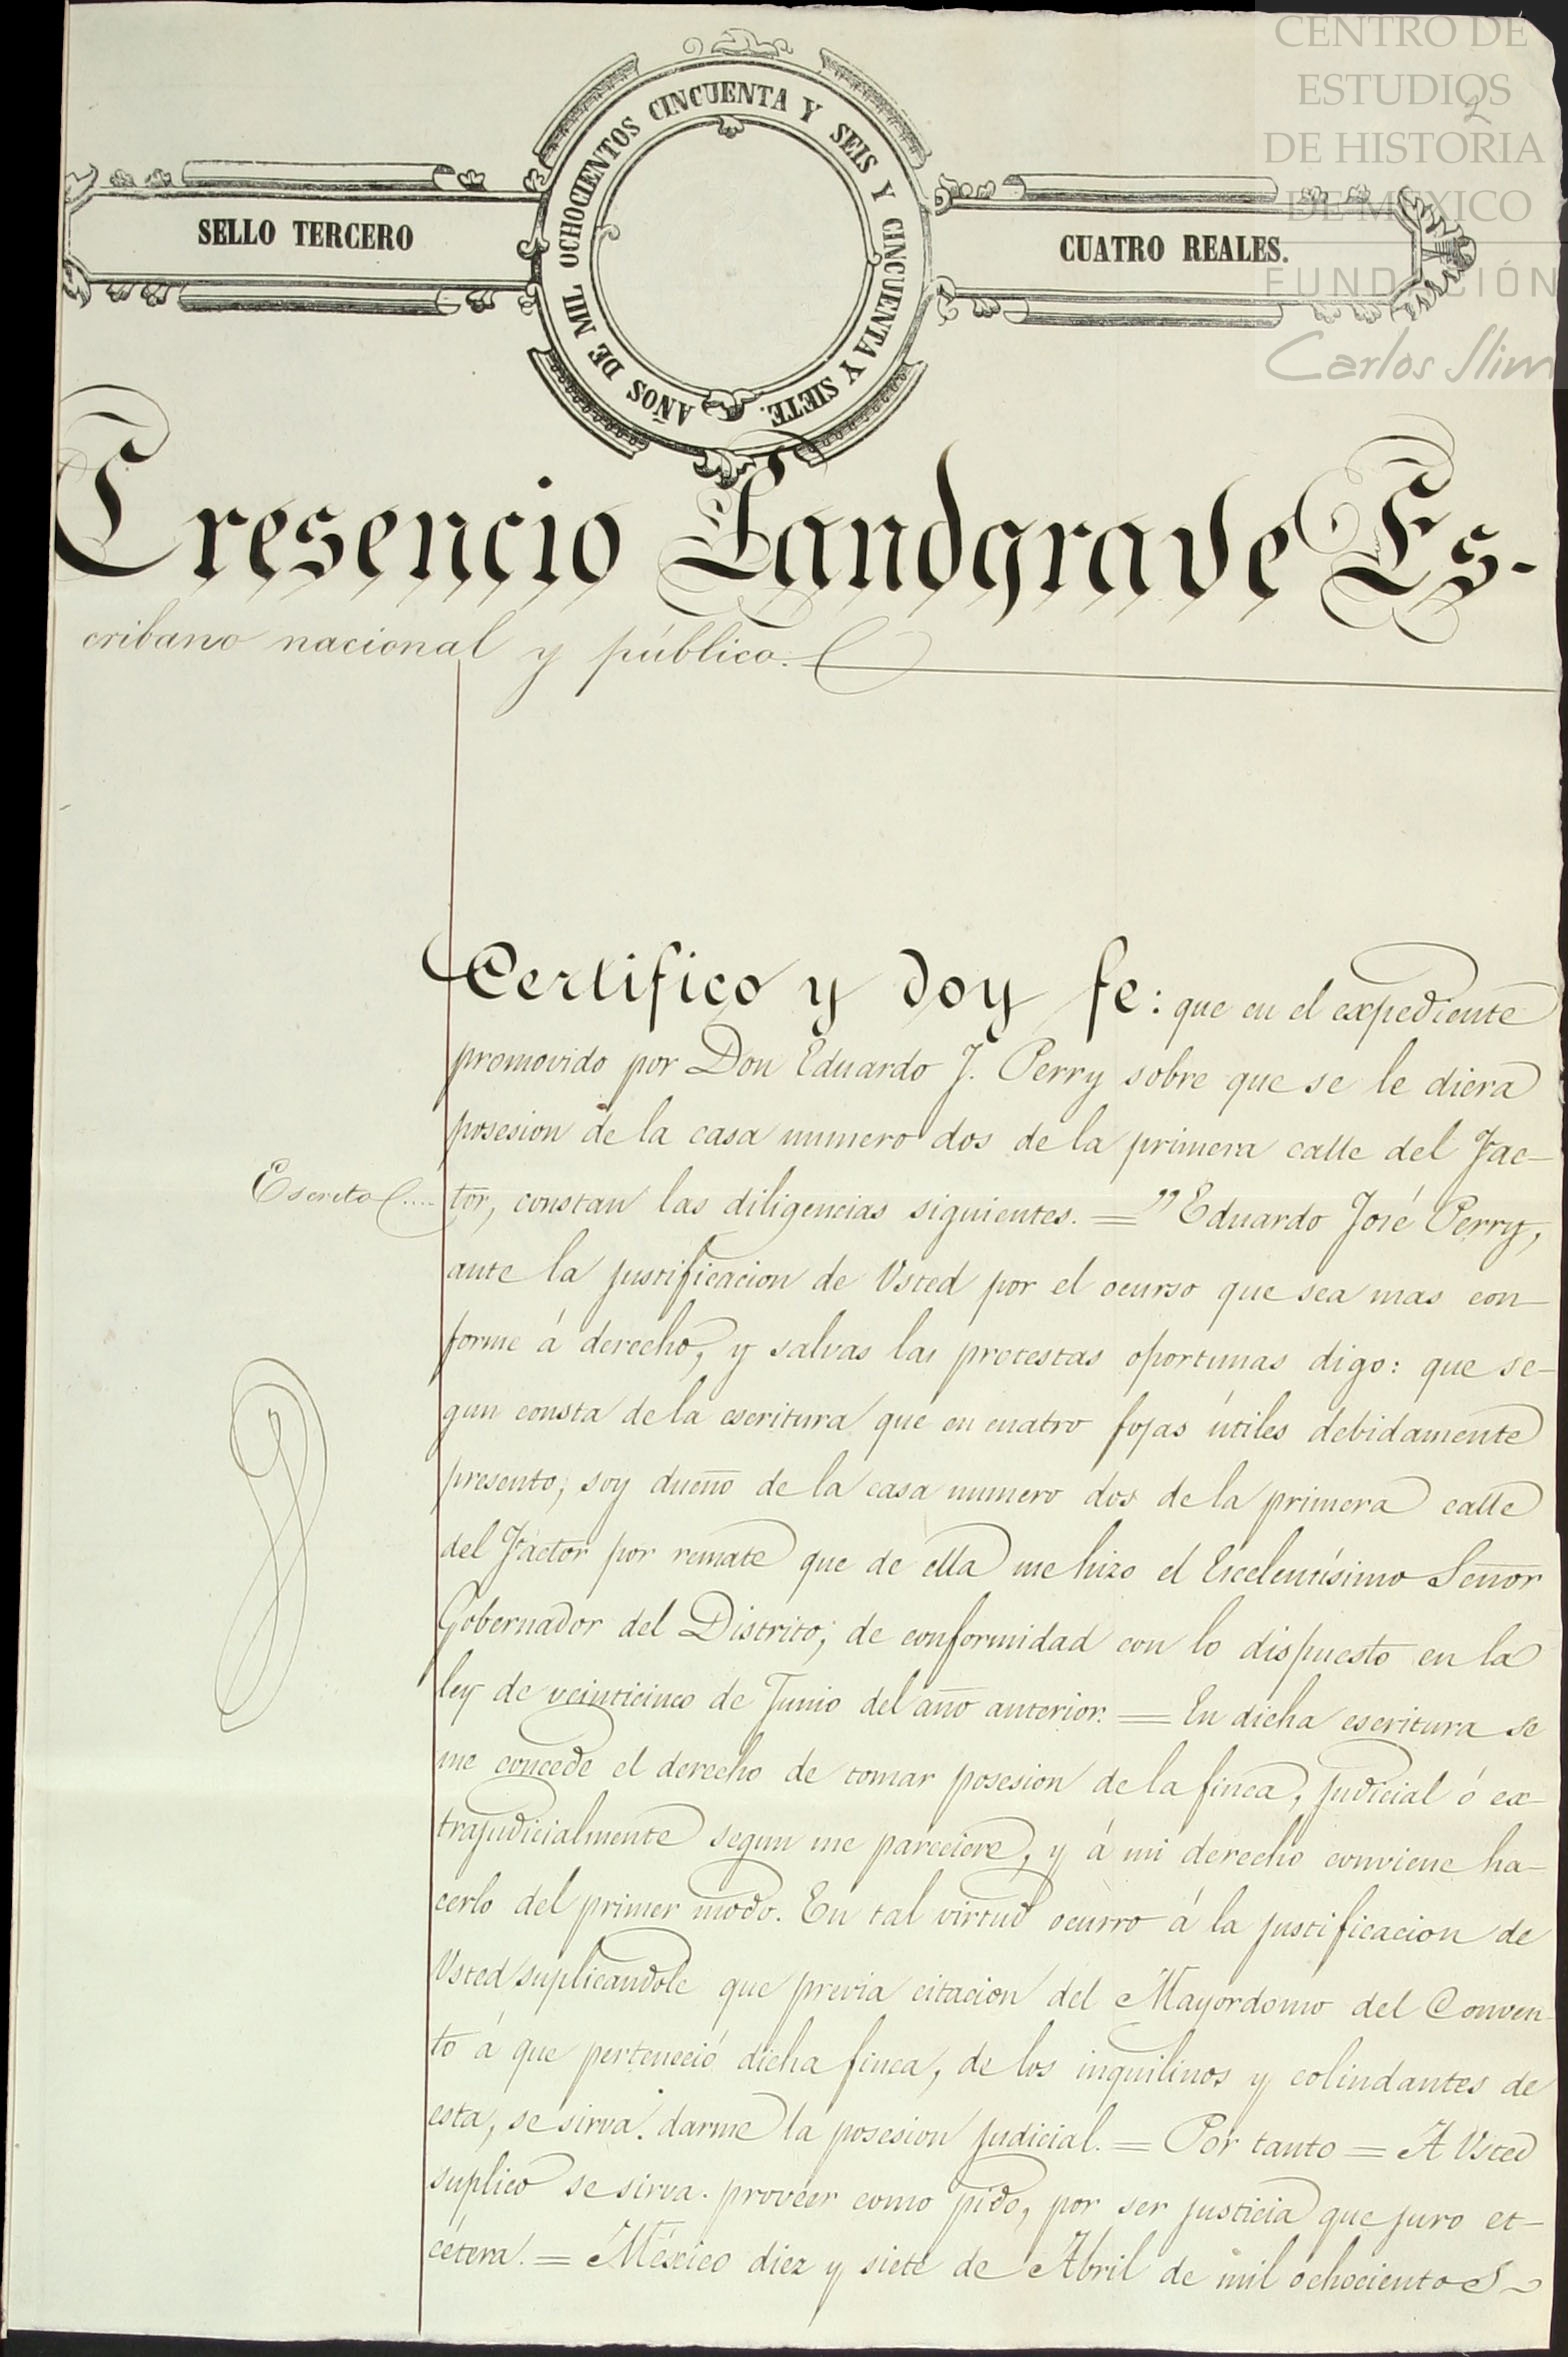 CENTRO DE
ESTUDIOS
2
DE HISTORIA
DE MÉXICO
FUNDACIÓN
Carlos Slim
SELLO TERCERO
AÑOS DE MIL OCHOCIENTOS CINCUENTA Y SEIS Y CINCUENTA Y SIETE.
CUATRO REALES.
Cresencio Landgrave Es-
cribano nacional y público.
Certifico y doy fe: que en el expediente
promovido por Don Eduardo J. Perry sobre que se le diera
posesion de la casa numero dos de la primera calle del Fac-
Escrito
tor, constan las diligencias siguientes. = "Eduardo José Perry,
ante la justificacion de Usted por el ocurso que sea mas con-
forme á derecho, y salvas las protestas oportunas digo: que se-
gun consta de la escritura que en cuatro fojas útiles debidamente
presento, soy dueño de la casa numero dos de la primera calle
del Factor por remate que de ella me hizo el Escelentísimo Señor
Gobernador del Distrito; de conformidad con lo dispuesto en la
ley de veinticinco de Junio del año anterior. = En dicha escritura se
me concede el derecho de tomar posesion de la finca, judicial ó ex-
trajudicialmente segun me pareciere, y á mi derecho conviene ha-
cerlo del primer modo. En tal virtud ocurro á la justificacion de
Usted suplicandole que previa citacion del Mayordomo del Conven-
to á que perteneció dicha finca, de los inquilinos y colindantes de
esta, se sirva. darme la posesion judicial. = Por tanto = A Usted
suplico se sirva. proveer como pido, por ser justicia que juro et-
cétera. = México diez y siete de Abril de mil ochocientos